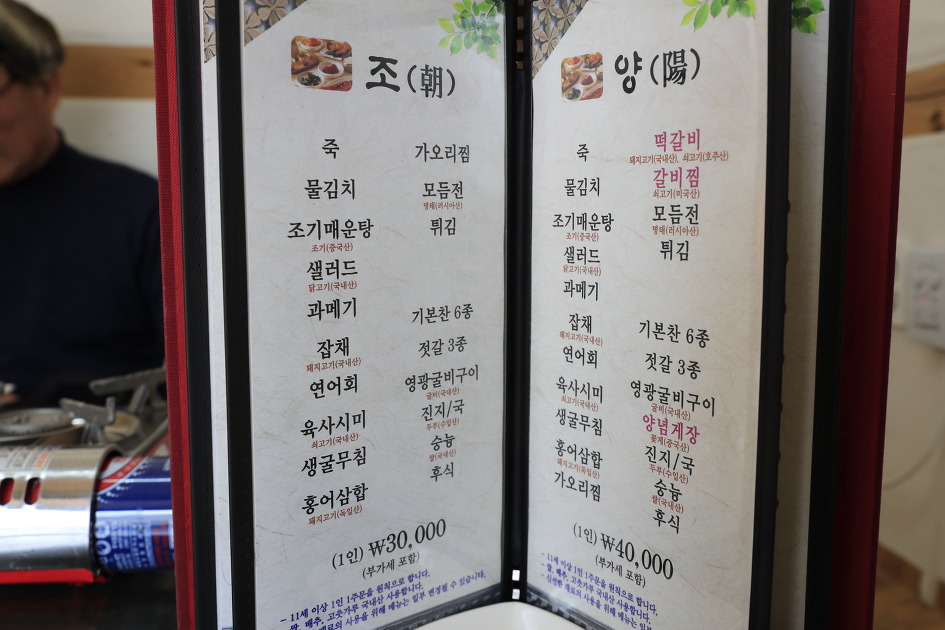 조(朝)
죽
물김치
조기매운탕
조기(중국산)
샐러드
닭고기(국내산)
과메기
잡채
돼지고기(국내산)
연어회
육사시미
쇠고기(국내산)
생굴무침
홍어삼합
돼지고기(독일산)
가오리찜
모듬전
명태(러시아산)
튀김
기본찬 6종
젓갈 3종
영광굴비구이
굴비(국내산)
진지/국
두부(수입산)
숭늉
쌀(국내산)
후식
(1인) ₩30,000
(부가세 포함)
- 11세 이상 1인 1주문을 원칙으로 합니다.
- 쌀, 배추, 고춧가루 국내산 사용합니다.
재료의 사용을 위해 메뉴는 일부 변경될 수 있습니다.
양(陽)
죽
물김치
조기매운탕
조기(중국산)
샐러드
닭고기(국내산)
과메기
잡채
돼지고기(국내산)
연어회
육사시미
쇠고기(국내산)
생굴무침
홍어삼합
돼지고기(독일산)
가오리찜
떡갈비
돼지고기(국내산), 쇠고기(호주산)
갈비찜
쇠고기(미국산)
모듬전
명태(러시아산)
튀김
기본찬 6종
젓갈 3종
영광굴비구이
굴비(국내산)
양념게장
꽃게(중국산)
진지/국
두부(수입산)
숭늉
쌀(국내산)
후식
(1인) ₩40,000
(부가세 포함)
- 11세 이상 1인 1주문을 원칙으로 합니다.
- 쌀, 배추, 고춧가루 국내산 사용합니다.
- 신선한 재료의 사용을 위해 메뉴는 일부